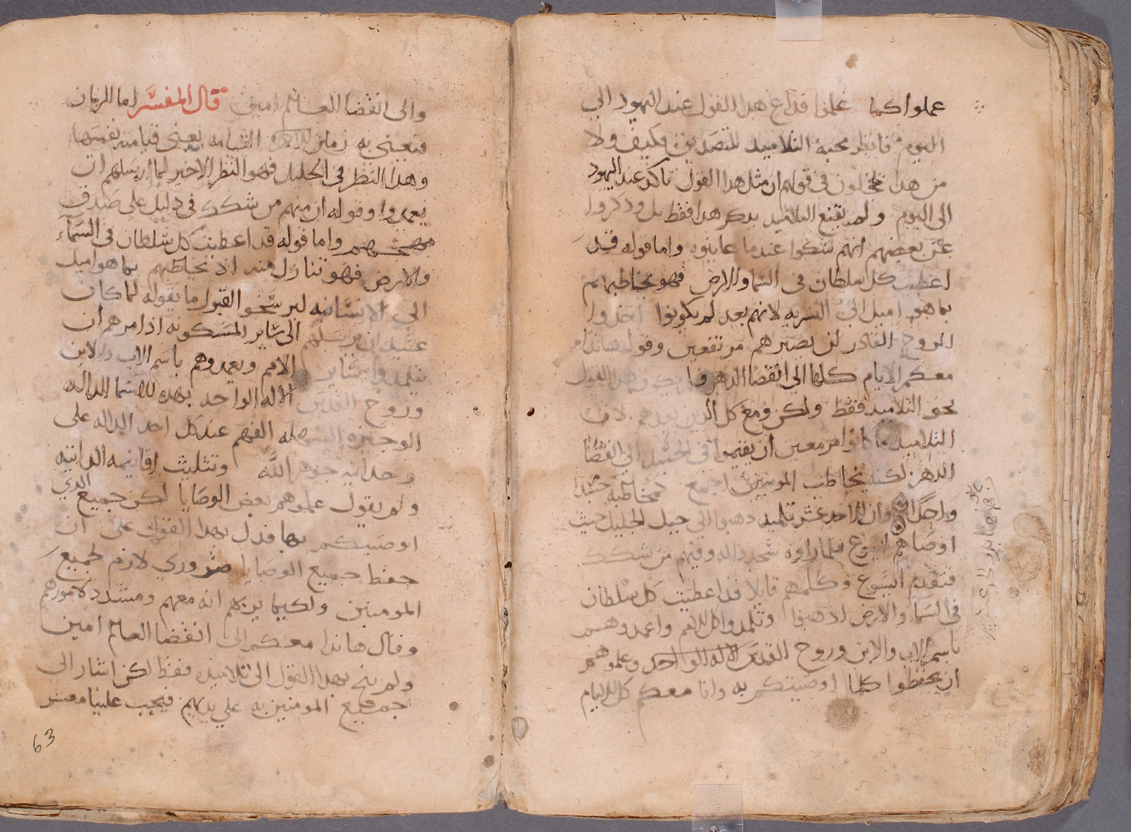 عملوا كما علموا فداع هدا القول عند اليهود الى
اليوم فانظر محبة التلاميد للتصديق وكيف ولا
من هدا يخجلون في قولهم ان مثل هدا القول تاكد عند اليهود
الى اليوم ولم يقنع التلاميد بدكر هدا فقط بل ودكروا
عن بعضهم انهم شكوا عندما عاينوه واما قوله قد
اعطيت كل سلطان في السما والارض فهو يخاطبهم
بما هو اميل الى البشريه لانهم بعد لم يكونوا اخدوا
الروح القادر ان يصيرهم مرتفعين وقوله هاندا
معكم الايام كلها الى انقضا الدهر هدا القول
نحو التلاميد فقط ولكن ومع كل الدين بعدهم لان
التلاميد ما كانوا مزمعين ان يقيموا في الجسد الى انقضا
الدهر لكنه يخاطب المومنين اجمع كمخاطبه جسدا
واحدا وان الاحد عشر تلميد دهبوا الى جبل الجليل حيث
اوصاهم ايسوع فلما راوه سجدوا له وفيهم من شكك
فتقدم ايسوع وكلمهم قايلا قد اعطيت كل سلطان
في السما والارض ادهبوا وتلمدوا كل الامم واعمدوهم
باسم الاب والابن وروح القدس الاله الواحد وعلموهم
ان يحفظوا كلما اوصيتكم به وانا معكم كل الايام
والى انقضا العالم امين قال المفسر اما الزمان
فيعني به زمان القيامه يعني قيامته نفسها
وهدا النظر في الجليل فهو النظر الاخير لما ارسلهم ان
يعمدوا وقوله ان منهم من شكك في دليل على صدق
واما قوله قد اعطيت كل سلطان في السماء
والارض فهو تنازل منه اد يخاطبهم بما هو اميل
الى الانسانيه ليرسخوا القبول ما يقوله لما كان
عتيد ان يرسلهم الى ساير المسكونه ادا امرهم ان
يتلمدوا ساير الامم ويعمدوهم باسم الاب والابن
وروح القدس الاله الواحد بهده الاسما الداله
الوجيزه السهله الفهم عند كل احد الداله على
وحدانية جوهر الله وتثليث اقانيمه الداتيه
ولم يقول علموهم بعض الوصايا لكن جميع الدي
اوصيتكم بها فدل بهدا القول على ان
حفظ جميع الوصايا ضروري لازم لجميع
المومنين ولكيما يريهم انه معهم ومشدد لامورهم
وقال هاندا معكم الى انقضا العالم امين
ولم ينح بهدا القول الى تلاميده فقط لكن اشار الى
جميع المومنين به على يديهم فيجب علينا معشر
63